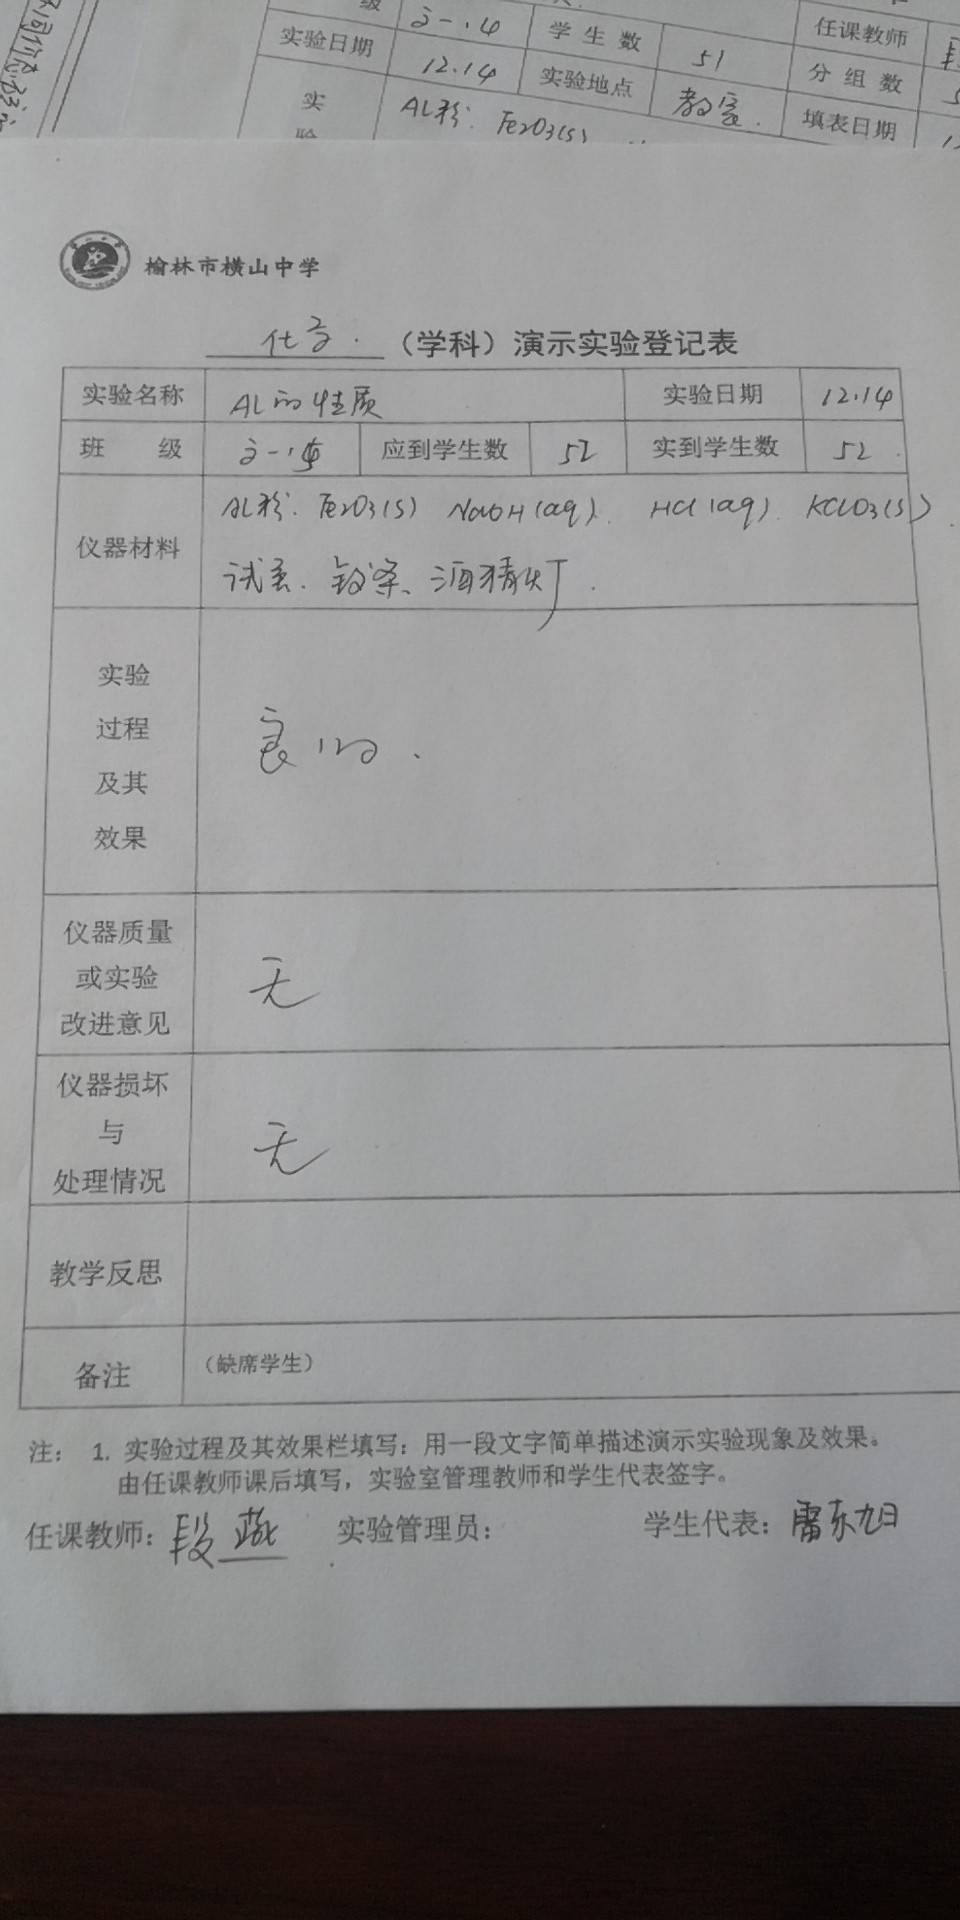 级 高一.14 学生数 51 任课教师
实验日期 12.14 实验地点 教室. 分组数
实 AL粉. Fe2O3(s) 填表日期
验
榆林市横山中学
化学. （学科）演示实验登记表
实验名称 AL的性质 实验日期 12.14
班 级 高一. 应到学生数 52 实到学生数 52.
仪器材料 AL粉. Fe2O3(s) NaOH(aq). HCl(aq) KClO3(s).
试管. 镁条、酒精灯.
实验
过程
及其
效果
良好.
仪器质量
或实验
改进意见
无
仪器损坏
与
处理情况
无
教学反思
备注 （缺席学生）
注： 1. 实验过程及其效果栏填写：用一段文字简单描述演示实验现象及效果。
由任课教师课后填写，实验室管理教师和学生代表签字。
任课教师：段燕 实验管理员： 学生代表：雷东旭